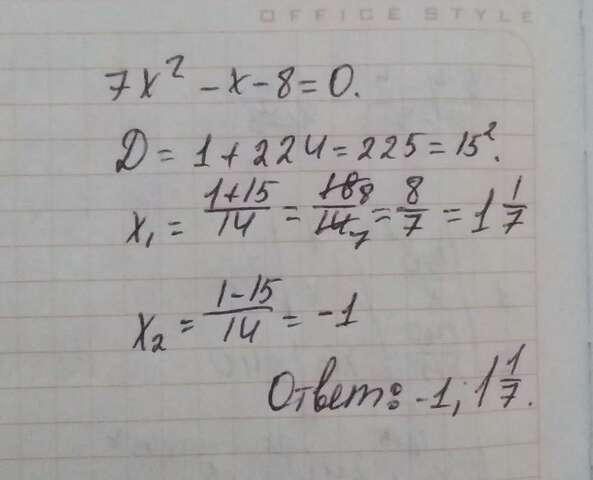 OFFICE STYLE
7x² - x - 8 = 0.
D = 1 + 224 = 225 = 15².
x₁ = (1+15)/14 = 16 8/14 7 = 8/7 = 1 1/7
x₂ = (1-15)/14 = -1
Ответ: -1; 1 1/7.